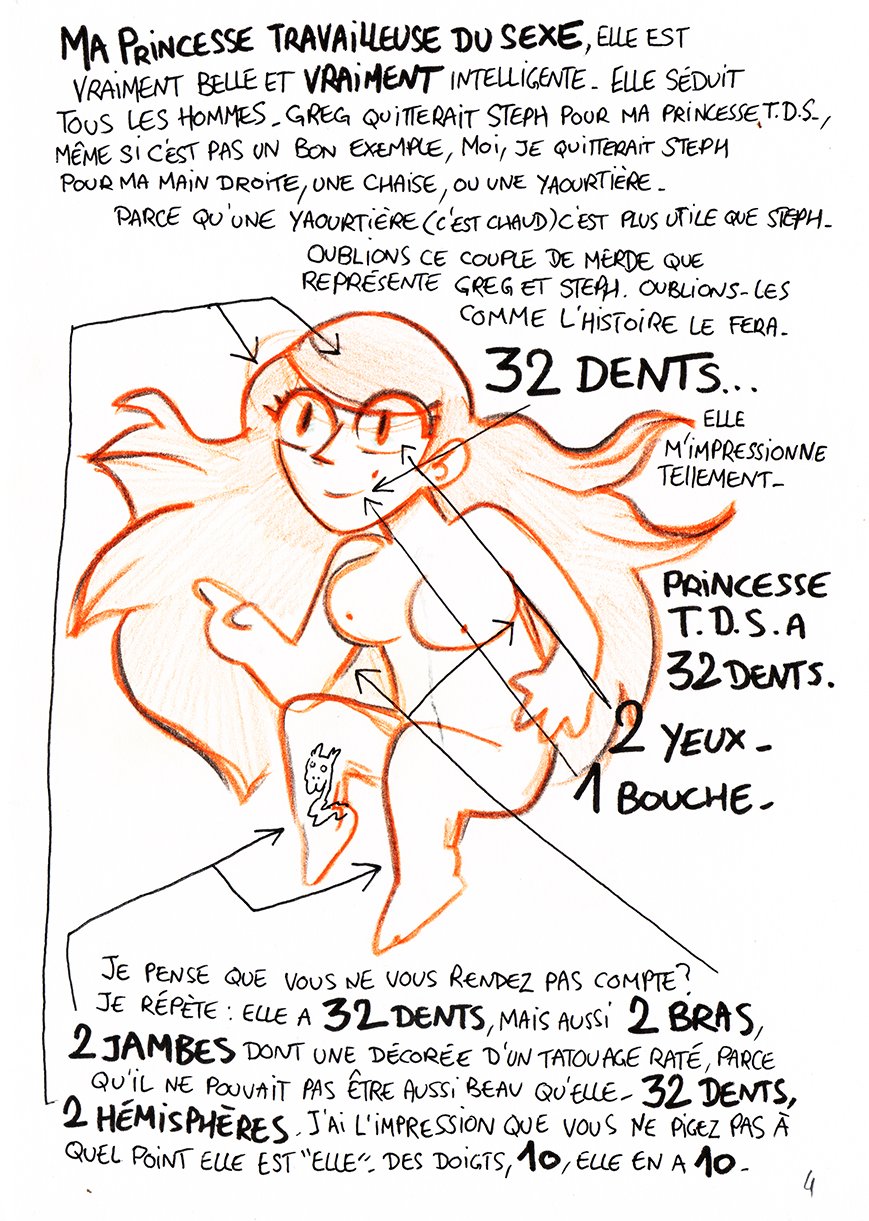 MA PRINCESSE TRAVAILLEUSE DU SEXE, ELLE EST
VRAIMENT BELLE ET VRAIMENT INTELLIGENTE_ ELLE SÉDUIT
TOUS LES HOMMES_ GREG QUITTERAIT STEPH POUR MA PRINCESSE T.D.S.,
MÊME SI C'EST PAS UN BON EXEMPLE, MOI, JE QUITTERAIT STEPH
POUR MA MAIN DROITE, UNE CHAISE, OU UNE YAOURTIÈRE_
PARCE QU'UNE YAOURTIÈRE (C'EST CHAUD) C'EST PLUS UTILE QUE STEPH_
OUBLIONS CE COUPLE DE MERDE QUE
REPRÉSENTE GREG ET STEPH. OUBLIONS-LES
COMME L'HISTOIRE LE FERA_
32 DENTS...
ELLE
M'IMPRESSIONNE
TELLEMENT_
PRINCESSE
T.D.S. A
32 DENTS.
2 YEUX_
1 BOUCHE_
JE PENSE QUE VOUS NE VOUS RENDEZ PAS COMPTE?
JE RÉPÈTE : ELLE A 32 DENTS, MAIS AUSSI 2 BRAS,
2 JAMBES DONT UNE DÉCORÉE D'UN TATOUAGE RATÉ, PARCE
QU'IL NE POUVAIT PAS ÊTRE AUSSI BEAU QU'ELLE_ 32 DENTS,
2 HÉMISPHÈRES. J'AI L'IMPRESSION QUE VOUS NE PIGEZ PAS À
QUEL POINT ELLE EST "ELLE"_ DES DOIGTS, 10, ELLE EN A 10_
4